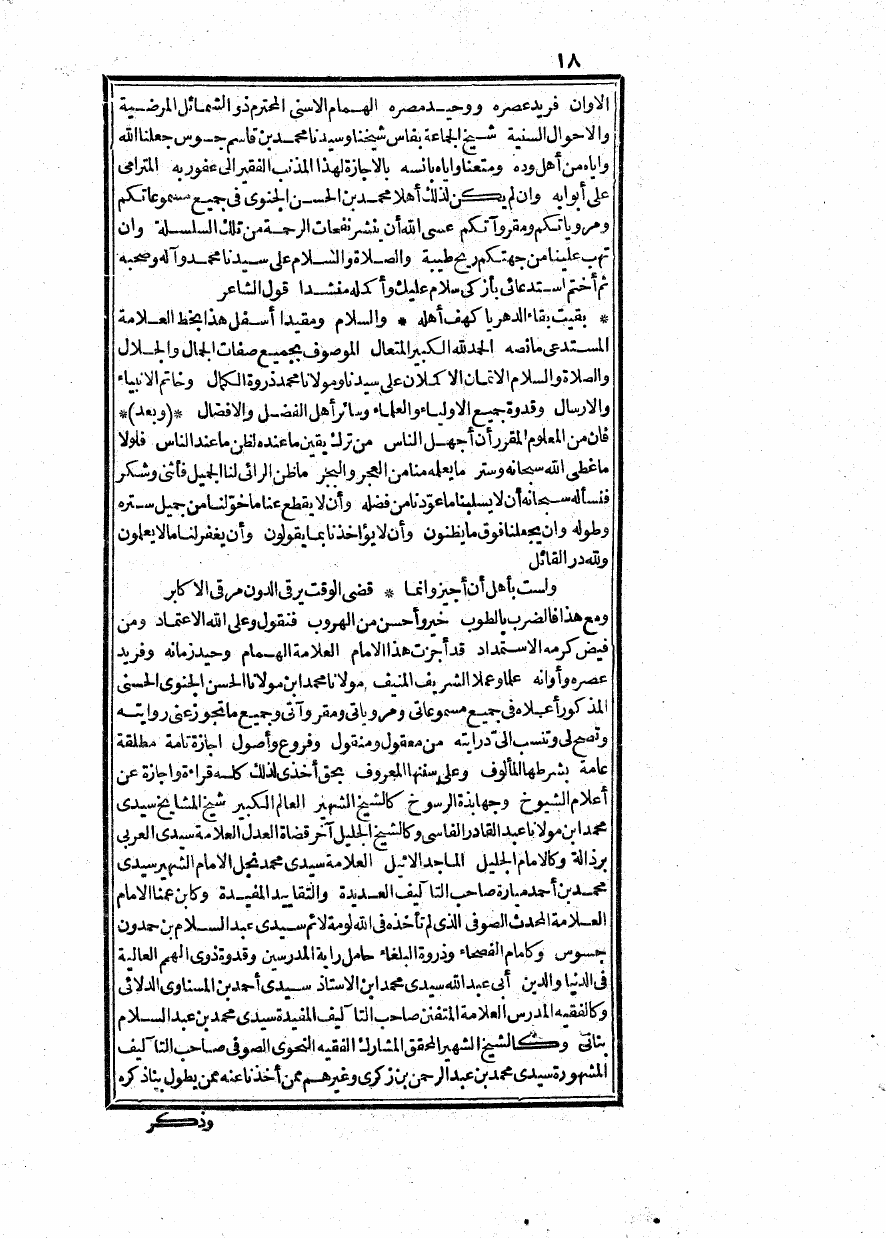 ١٨
الاوان فريد عصره ووحيد مصره الهمام الاسنى المحترم ذو الشمائل المرضية
والاحوال السنية شيخ الجماعة بفاس شيخنا وسيدنا محمد بن قاسم جسوس جعلنا الله
واياه من أهل وده ومتعنا واياه بانسه بالاجازة لهذا المذنب الفقير الى عفو ربه المترامى
على أبوابه وان لم يكن لذلك أهلا محمد بن الحسن الجنوى فى جميع مسموعاتكم
ومروياتكم ومقروآتكم عسى الله أن ينشر نفحات الرحمة من تلك السلسلة وان
تهب علينا من جهتكم ريح طيبة والصلاة والسلام على سيدنا محمد وآله وصحبه
ثم أختم استدعائى بأزكى سلام عليك وأكمله منشدا قول الشاعر
* بقيت بقاء الدهر يا كهف أهله * والسلام ومقيدا أسفل هذا بخط العلامة
المستدعى مانصه الحمد لله الكبير المتعال الموصوف بجميع صفات الجمال والجلال
والصلاة والسلام الاتمان الاكملان على سيدنا ومولانا محمد ذروة الكمال وخاتم الانبياء
والارسال وقدوة جميع الاولياء والعلماء وسائر أهل الفضل والافضال *(وبعد)*
فان من المعلوم المقرر أن أجهل الناس من ترك يقين ما عنده لظن ما عند الناس فلولا
ما غطى الله سبحانه وستر ما يعلمه منا من العجر والبجر ماظن الرائى لنا الجميل فأثنى وشكر
فنسأله سبحانه أن لا يسلبنا ماعودنا من فضله وأن لا يقطع عنا ما خولنا من جميل ستره
وطوله وان يجعلنا فوق مايظنون وأن لا يؤاخذنا بما يقولون وأن يغفر لنا مالا يعلمون
ولله در القائل
ولست بأهل أن أجيز وانما * قضى الوقت يرقى الدون مرقى الاكابر
ومع هذا فالضرب بالطوب خير وأحسن من الهروب فنقول وعلى الله الاعتماد ومن
فيض كرمه الاستمداد قد أجزت هذا الامام العلامة الهمام وحيد زمانه وفريد
عصره وأوانه علما وعملا الشريف المنيف مولانا محمد ابن مولانا الحسن الجنوى الحسنى
المذكور أعلاه فى جميع مسموعاتى ومروياتى ومقروآتى وجميع ما تجوز عنى روايته
وتصح لى وتنسب الىّ درايته من معقول ومنقول وفروع وأصول اجازة تامة مطلقة
عامة بشرطها المألوف وعلى سننها المعروف بحق أخذى لذلك كله قراءة واجازة عن
أعلام الشيوخ وجهابذة الرسوخ كالشيخ الشهير العالم الكبير شيخ المشايخ سيدى
محمد ابن مولانا عبد القادر الفاسى وكالشيخ الجليل آخر قضاة العدل العلامة سيدى العربى
بردالة وكالامام الجليل الماجد الاثيل العلامة سيدى محمد نجل الامام الشهير سيدى
محمد بن أحمد ميارة صاحب التا ليف العديدة والتقاييد المفيدة وكابن عمنا الامام
العلامة المحدث الصوفى الذى لم تأخذه فى الله لومة لائم سيدى عبد السلام بن حمدون
جسوس وكامام الفصحاء وذروة البلغاء حامل راية المدرسين وقدوة ذوى الهمم العالية
فى الدنيا والدين أبى عبد الله سيدى محمد ابن الاستاذ سيدى أحمد بن المسناوى الدلائى
وكالفقيه المدرس العلامة المتفنن صاحب التا ليف المفيدة سيدى محمد بن عبد السلام
بنانى وكالشيخ الشهير المحقق المشارك الفقيه النحوى الصوفى صاحب التا ليف
المشهورة سيدى محمد بن عبد الرحمن بن زكرى وغيرهم ممن أخذنا عنه ممن يطول بنا ذكره
وذكر